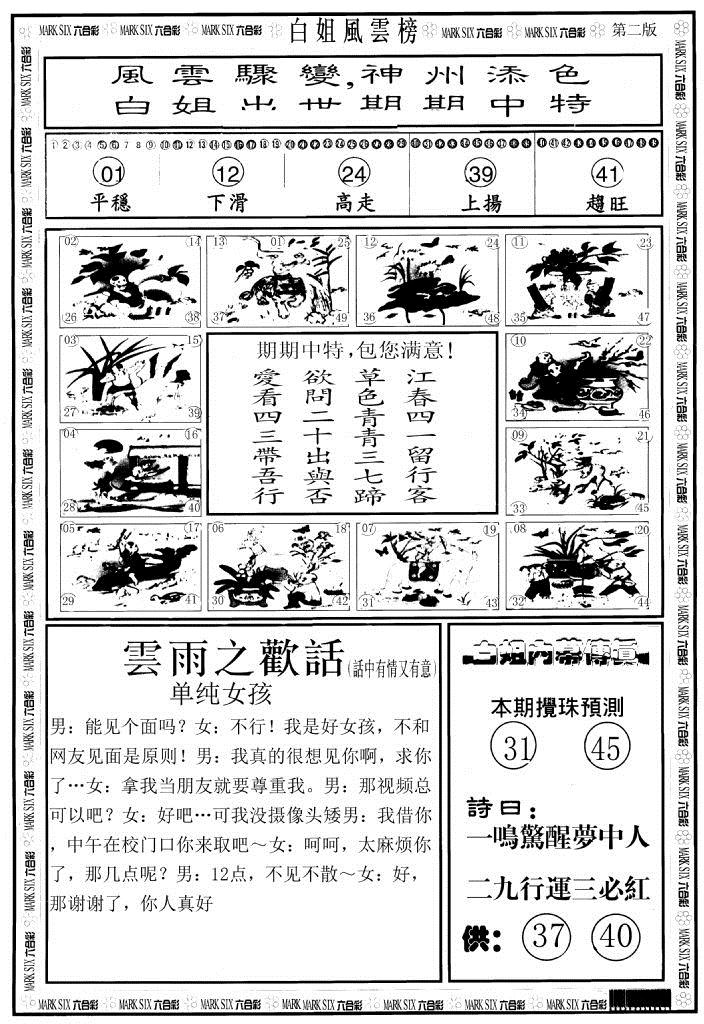 MARK SIX 六合彩 MARK SIX 六合彩 MARK SIX 六合彩 白姐風雲榜 MARK SIX 六合彩 MARK SIX 六合彩 第二版
風雲驟變,神州添色
白姐出世期期中特
01 12 24 39 41
平穩 下滑 高走 上揚 趨旺
02 14 26 38
13 01 25 37 49
12 24 36 48
11 23 35 47
03 15 27 39
10 22 34 46
04 16 28 40
09 21 33 45
05 17 29 41
06 18 30 42
07 19 31 43
08 20 32 44
期期中特,包您满意!
江春四一留行客
草色青青三七蹄
欲問二十出與否
愛看四三帶吾行
雲雨之歡話(話中有情又有意)
单纯女孩
男：能见个面吗？女：不行！我是好女孩，不和
网友见面是原则！男：我真的很想见你啊，求你
了…女：拿我当朋友就要尊重我。男：那视频总
可以吧？女：好吧…可我没摄像头矮男：我借你
，中午在校门口你来取吧～女：呵呵，太麻烦你
了，那几点呢？男：12点，不见不散～女：好，
那谢谢了，你人真好
白姐内幕傳真
本期攪珠預測
31 45
詩曰：
一鳴驚醒夢中人
二九行運三必紅
供： 37 40
MARK SIX 六合彩 MARK SIX 六合彩 MARK SIX 六合彩 MARK MARK SIX 六合彩 MARK SIX 六合彩 MARK SIX 六合彩